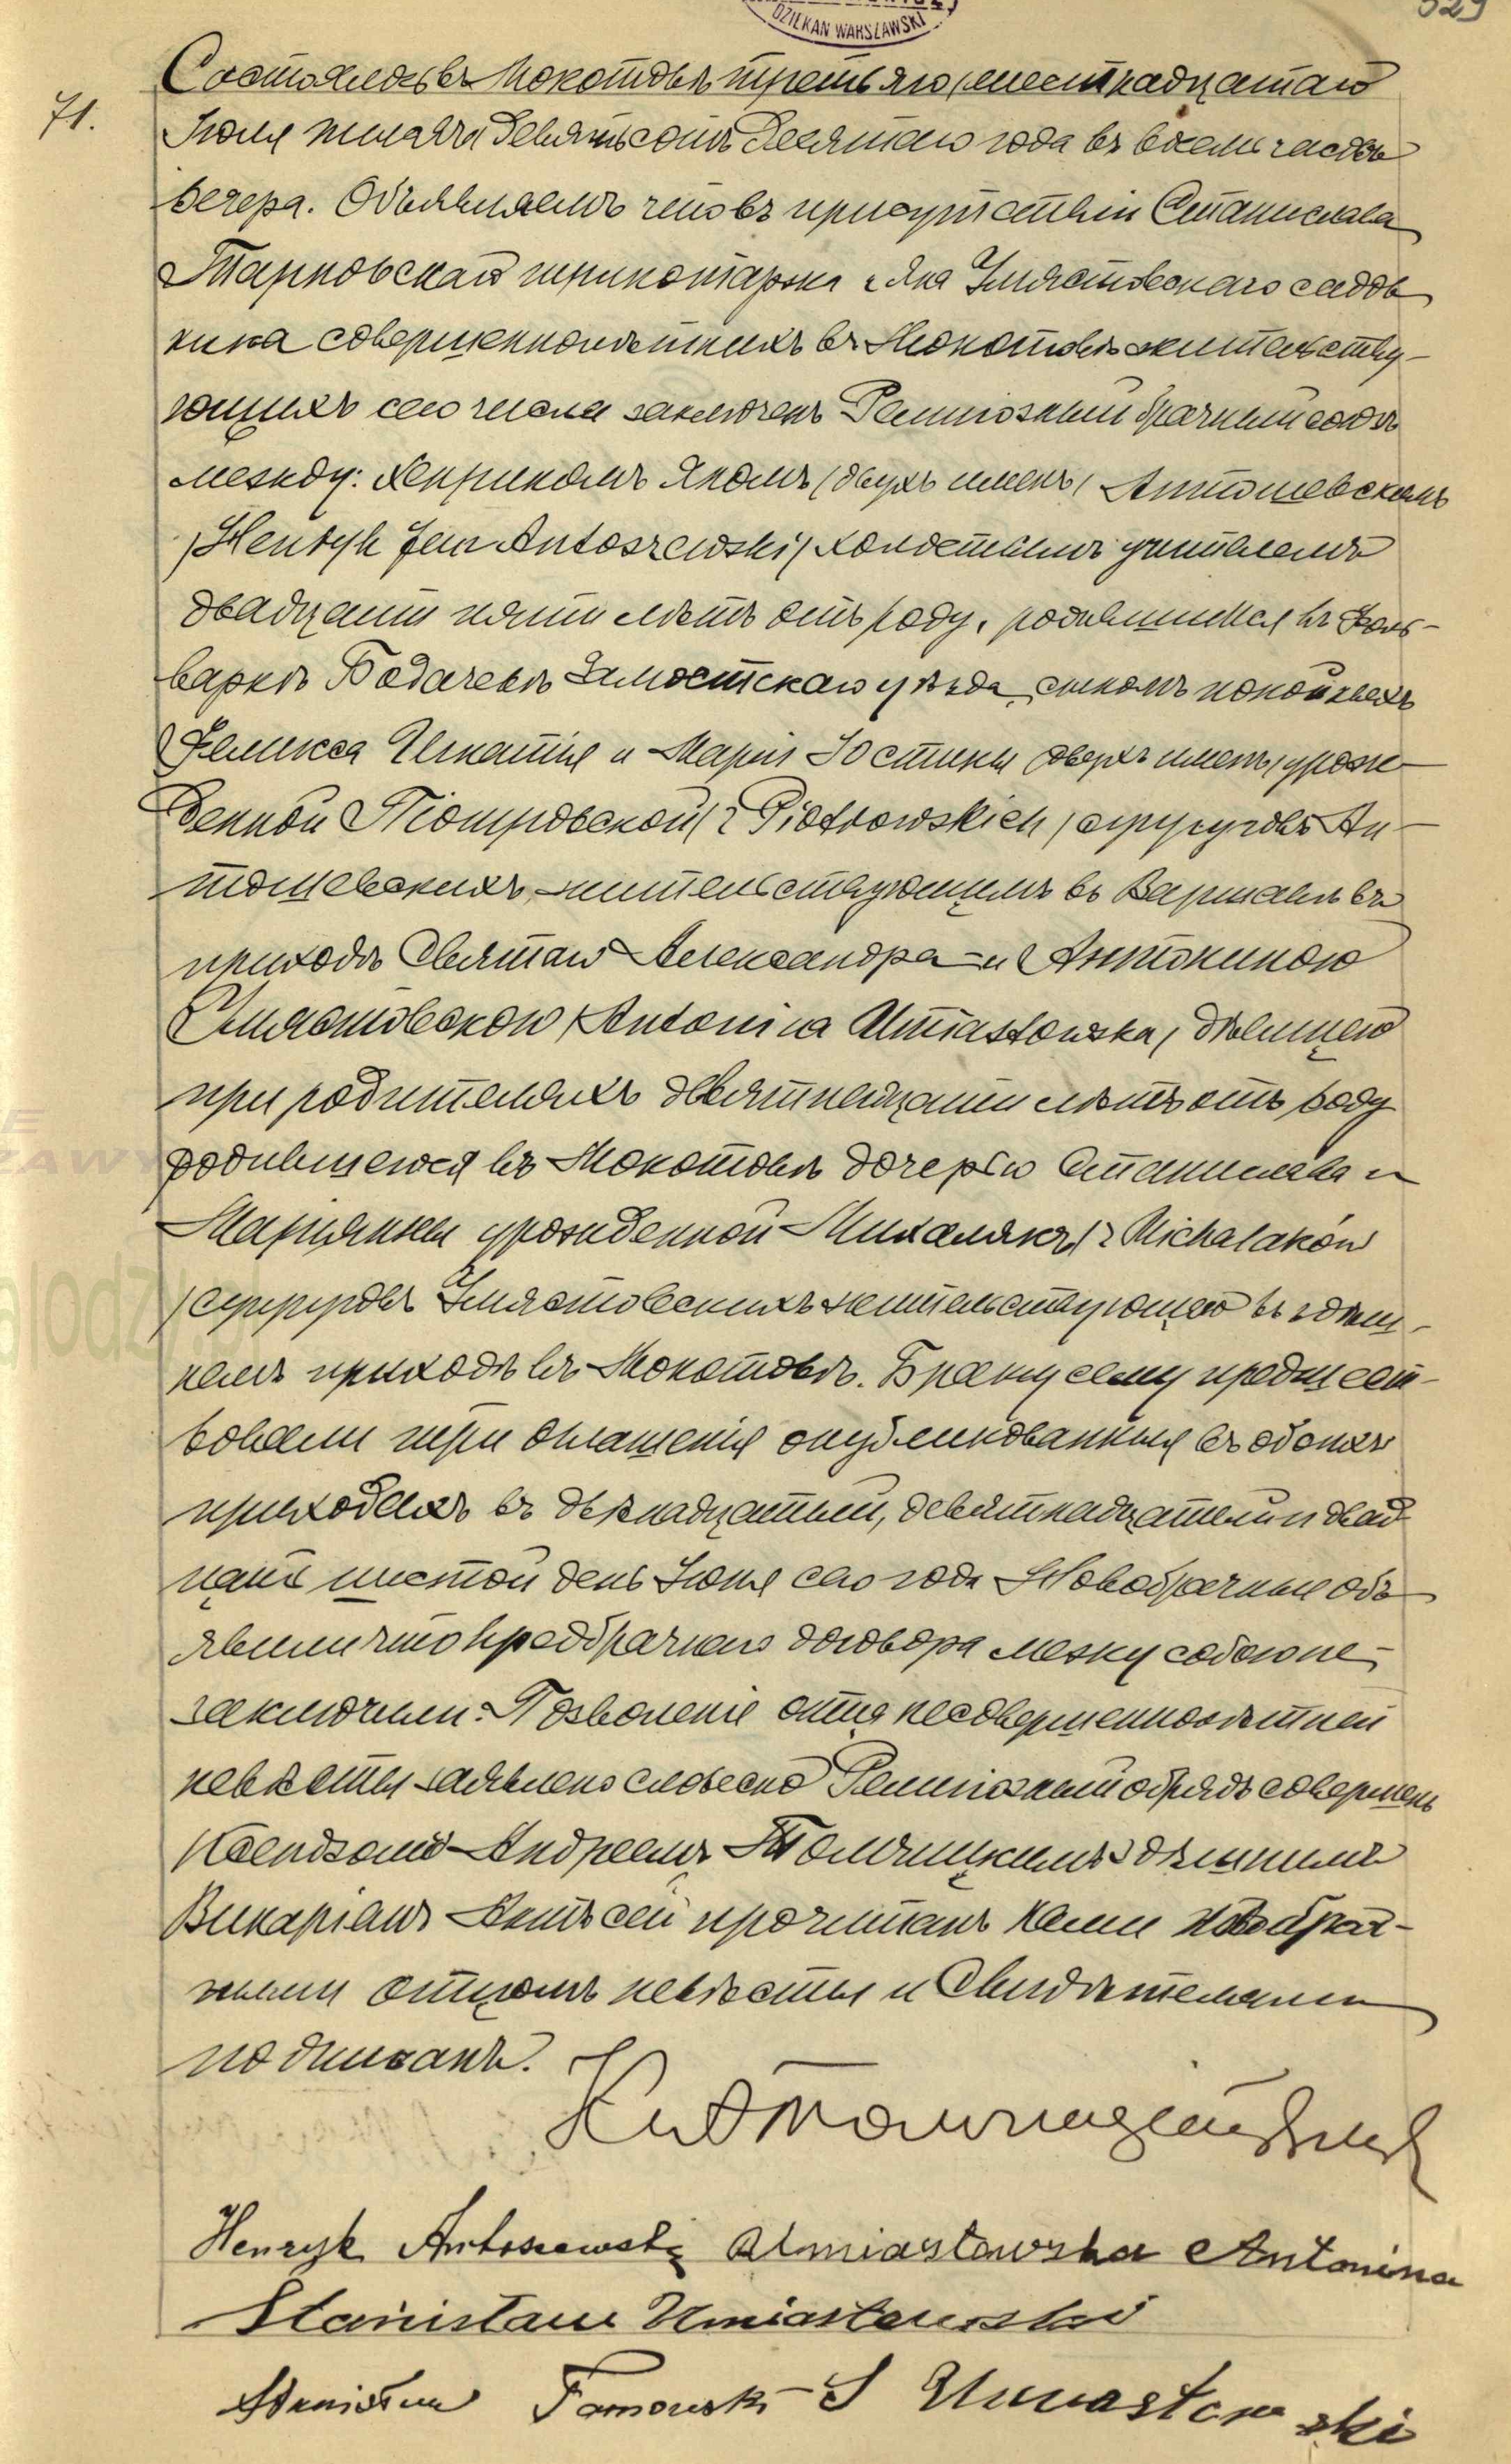 329
DZIEKAN WARSZAWSKI
71.
Состоялось въ Мокотовѣ третьяго шестнадцатаго
Іюля тысяча девятьсотъ десятаго года въ восемь часовъ
вечера. Объявляемъ что въ присутствіи Станислава
Тарновскаго трикотаржа и Яна Умястовскаго садов
ника совершеннолѣтнихъ въ Мокотовѣ жительству-
ющихъ сего числа заключенъ Религіозный брачный союзъ
между: Хенрикомъ Яномъ (двухъ именъ) Антошевскимъ
/Henryk Jan Antoszewski/ холостымъ учителемъ
двадцати пяти лѣтъ отъ роду, родившимся въ Фоль-
варкѣ Бодачевѣ Замостскаго уѣзда, сыномъ покойныхъ
Феликса Игнатія и Маріи Юстины двухъ именъ урож-
денной Піотровской /z Piotrowskich/ супруговъ Ан-
тошевскихъ, жительствующимъ въ Варшавѣ въ
приходѣ Святаго Александра – и Антониною
Умястовскою /Antonina Umiastowska/, дѣвицею
при родителяхъ девятнадцати лѣтъ отъ роду
родившеюся въ Мокотовѣ дочерью Станислава и
Маріянны урожденной Михалякъ /z Michalaków
/супруговъ Умястовскихъ жительствующею въ здѣш-
немъ приходѣ въ Мокотовѣ. Браку сему предшест-
вовали три оглашенія опубликованныя въ обоихъ
приходахъ въ двѣнадцатый, девятнадцатый и двад
цать шестой день Іюня сего года Новобрачные объ
явили что предбрачнаго договора между собою не-
заключили. Позволеніе отца несовершеннолѣтней
невѣсты заявлено словесно Религіозный обрядъ совершенъ
Ксендзомъ Андреемъ здѣшнимъ
Викаріемъ Актъ сей прочитанъ нами новобра-
чными отцомъ невѣсты и Свидѣтелями
подписанъ.
Henryk Antoszewski Umiastowska Antonina
Stanisław Umiastowski
Stanisław Tarnowski J Umiastowski